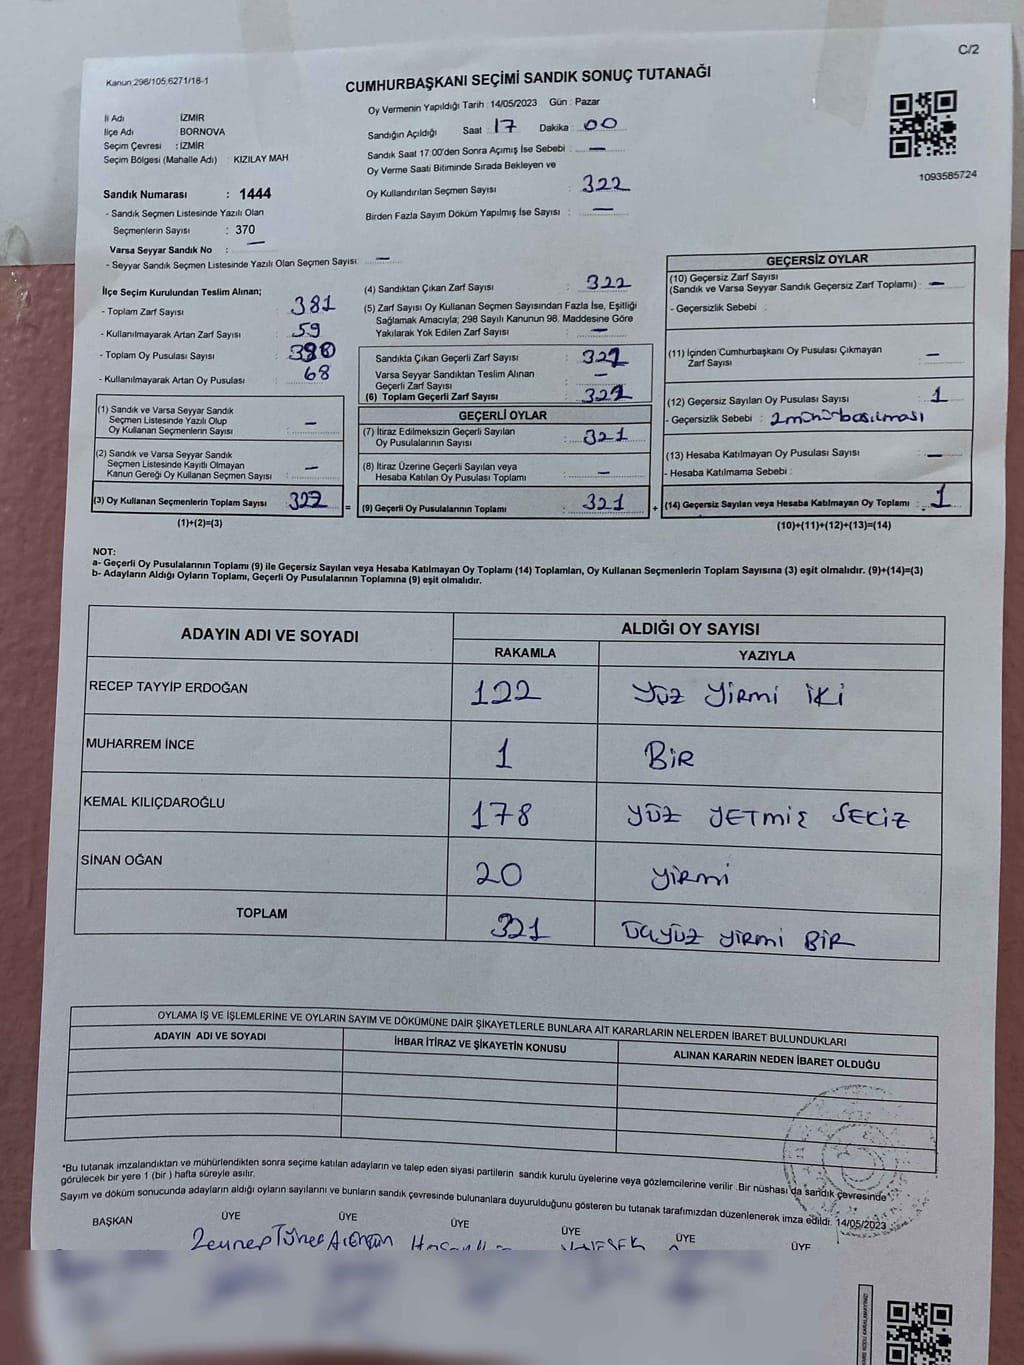 C/2
Kanun:298/105,6271/18-1
CUMHURBAŞKANI SEÇİMİ SANDIK SONUÇ TUTANAĞI
Oy Vermenin Yapıldığı Tarih : 14/05/2023 Gün : Pazar
İl Adı : İZMİR
İlçe Adı : BORNOVA
Seçim Çevresi : İZMİR
Seçim Bölgesi (Mahalle Adı) : KIZILAY MAH
Sandığın Açıldığı Saat : 17 Dakika : 00
Sandık Saat 17:00'den Sonra Açımış İse Sebebi : —
Oy Verme Saati Bitiminde Sırada Bekleyen ve
Oy Kullandırılan Seçmen Sayısı : 322
Birden Fazla Sayım Döküm Yapılmış İse Sayısı : —
1093585724
Sandık Numarası : 1444
- Sandık Seçmen Listesinde Yazılı Olan
Seçmenlerin Sayısı : 370
Varsa Seyyar Sandık No : —
- Seyyar Sandık Seçmen Listesinde Yazılı Olan Seçmen Sayısı: —
İlçe Seçim Kurulundan Teslim Alınan;
- Toplam Zarf Sayısı : 381
- Kullanılmayarak Artan Zarf Sayısı : 59
- Toplam Oy Pusulası Sayısı :
- Kullanılmayarak Artan Oy Pusulası : 68
(1) Sandık ve Varsa Seyyar Sandık
Seçmen Listesinde Yazılı Olup
Oy Kullanan Seçmenlerin Sayısı : —
(2) Sandık ve Varsa Seyyar Sandık
Seçmen Listesinde Kayıtlı Olmayan
Kanun Gereği Oy Kullanan Seçmen Sayısı : —
(3) Oy Kullanan Seçmenlerin Toplam Sayısı 322
(1)+(2)=(3)
(4) Sandıktan Çıkan Zarf Sayısı : 322
(5) Zarf Sayısı Oy Kullanan Seçmen Sayısından Fazla İse, Eşitliği
Sağlamak Amacıyla; 298 Sayılı Kanunun 98. Maddesine Göre
Yakılarak Yok Edilen Zarf Sayısı : —
Sandıkta Çıkan Geçerli Zarf Sayısı : 322
Varsa Seyyar Sandıktan Teslim Alınan
Geçerli Zarf Sayısı : —
(6) Toplam Geçerli Zarf Sayısı : 322
GEÇERLİ OYLAR
(7) İtiraz Edilmeksizin Geçerli Sayılan
Oy Pusulalarının Sayısı : 321
(8) İtiraz Üzerine Geçerli Sayılan veya
Hesaba Katılan Oy Pusulası Toplamı : —
= (9) Geçerli Oy Pusulalarının Toplamı : 321
GEÇERSİZ OYLAR
(10) Geçersiz Zarf Sayısı
(Sandık ve Varsa Seyyar Sandık Geçersiz Zarf Toplamı) : —
- Geçersizlik Sebebi :
(11) İçinden Cumhurbaşkanı Oy Pusulası Çıkmayan
Zarf Sayısı : —
(12) Geçersiz Sayılan Oy Pusulası Sayısı : 1
- Geçersizlik Sebebi : 2 mühür basılması
(13) Hesaba Katılmayan Oy Pusulası Sayısı : —
- Hesaba Katılmama Sebebi :
+ (14) Geçersiz Sayılan veya Hesaba Katılmayan Oy Toplamı : 1
(10)+(11)+(12)+(13)=(14)
NOT:
a- Geçerli Oy Pusulalarının Toplamı (9) ile Geçersiz Sayılan veya Hesaba Katılmayan Oy Toplamı (14) Toplamları, Oy Kullanan Seçmenlerin Toplam Sayısına (3) eşit olmalıdır. (9)+(14)=(3)
b- Adayların Aldığı Oyların Toplamı, Geçerli Oy Pusulalarının Toplamına (9) eşit olmalıdır.
ADAYIN ADI VE SOYADI ALDIĞI OY SAYISI
RAKAMLA YAZIYLA
RECEP TAYYİP ERDOĞAN 122 YÜZ YİRMİ İKİ
MUHARREM İNCE 1 BİR
KEMAL KILIÇDAROĞLU 178 YÜZ YETMİŞ SEKİZ
SİNAN OĞAN 20 YİRMİ
TOPLAM 321 ÜÇYÜZ YİRMİ BİR
OYLAMA İŞ VE İŞLEMLERİNE VE OYLARIN SAYIM VE DÖKÜMÜNE DAİR ŞİKAYETLERLE BUNLARA AİT KARARLARIN NELERDEN İBARET BULUNDUKLARI
ADAYIN ADI VE SOYADI İHBAR İTİRAZ VE ŞİKAYETİN KONUSU ALINAN KARARIN NEDEN İBARET OLDUĞU
*Bu tutanak imzalandıktan ve mühürlendikten sonra seçime katılan adayların ve talep eden siyasi partilerin sandık kurulu üyelerine veya gözlemcilerine verilir .Bir nüshası da sandık çevresinde
görülecek bir yere 1 (bir ) hafta süreyle asılır.
Sayım ve döküm sonucunda adayların aldığı oyların sayılarını ve bunların sandık çevresinde bulunanlara duyurulduğunu gösteren bu tutanak tarafımızdan düzenlenerek imza edildi. 14/05/2023
BAŞKAN ÜYE ÜYE ÜYE ÜYE ÜYE ÜYE
Zeynep